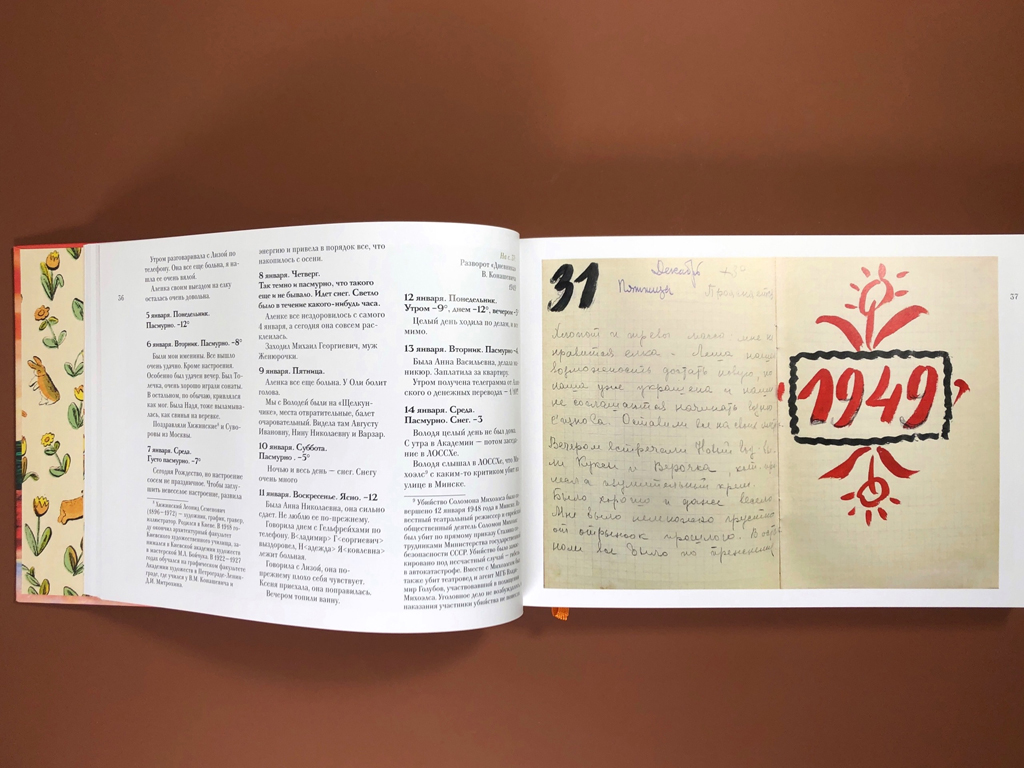 Утром разговаривала с Лизой по
телефону. Она все еще больна, я на-
шла ее очень вялой.
Аленка своим выездом на елку
осталась очень довольна.
56
5 января. Понедельник.
Пасмурно. –12°
6 января. Вторник. Пасмурно. –8°
Были мои именины. Все вышло
очень удачно. Кроме настроения.
Особенно был удачен вечер. Был То-
лечка, очень хорошо играли сонаты.
В остальном, по обычаю, кривлялся
как мог. Была Надя, тоже выламыва-
лась, как свинья на веревке.
Поздравляли Хижинские² и Суво-
ровы из Москвы.
7 января. Среда.
Густо пасмурно. –7°
Сегодня Рождество, но настроение
совсем не праздничное. Чтобы заглу-
шить невеселое настроение, развила
² Хижинский Леонид Семенович
(1896–1972) — художник, график, гравер,
иллюстратор. Родился в Киеве. В 1918 го-
ду окончил архитектурный факультет
Киевского художественного училища, за-
нимался в Киевской академии художеств
в мастерской М.Л. Бойчука. В 1922–1927
годах обучался на графическом факультете
Академии художеств в Петрограде-Ленин-
граде, где учился у В.М. Конашевича и
Д.И. Митрохина.
энергию и привела в порядок все, что
накопилось с осени.
8 января. Четверг.
Так темно и пасмурно, что такого
еще и не бывало. Идет снег. Светло
было в течение какого-нибудь часа.
Аленке все нездоровилось с самого
4 января, а сегодня она совсем рас-
клеилась.
Заходил Михаил Георгиевич, муж
Женюрочки.
9 января. Пятница.
Аленка все еще больна. У Оли болит
голова.
Мы с Володей были на «Щелкун-
чике», места отвратительные, балет
очаровательный. Видела там Августу
Ивановну, Нину Николаевну и Варзар.
10 января. Суббота.
Пасмурно . –5°
Ночью и весь день — снег. Снегу
очень много
11 января. Воскресенье. Ясно. –12
Была Анна Николаевна, она сильно
сдает. Не люблю ее по-прежнему.
Говорила днем с Гельфрейхами по
телефону. В<ладимир> Г<еоргиевич>
выздоровел, Н<адежда> Я<ковлевна>
лежит больная.
Говорила с Лизой, она по-
прежнему плохо себя чувствует.
Ксения приехала, она поправилась.
Вечером топили ванну.
Разворот «Дневника»
В. Конашевича
12 января. Понедельник.
Утром –9°, днем –12°, вечером
Целый день ходила по делам, и
мимо.
13 января. Вторник. Пасмурно
Была Анна Васильевна, делала
никюр. Заплатила за квартиру.
Утром получена телеграмма от
о денежных переводах –
14 января. Среда.
Пасмурно. Снег. –3
Володя целый день не был дома.
С утра в Академии — потом заседа-
ние в ЛОССХе.
Володя слышал в ЛОССХе, что
хоэлс³ с каким-то критиком убит
улице в Минске.
³ Убийство Соломона Михоэлса было
вершено 12 января 1948 года в Минске.
вестный театральный режиссер и
общественный деятель Соломон Михоэлс
был убит по прямому приказу Сталина
трудниками Министерства государственной
безопасности СССР. Убийство было
кировано под несчастный случай —
в автокатастрофе. Вместе с Михоэлсом
также убит театровед и агент МГБ Влади-
мир Голубов, участвовавший в
Михоэлса. Уголовное дело не возбуждалось,
наказания участники убийства не
31
Декабрь
Пятница
Хлопот и
нравится елка.
возможность достать новую, но
наша уже украшена и наши
не соглашаются начинать
с начала. Оставили
Вечером встречали Новый год. Бы-
ли Кукси и Верочка,
Было хорошо и даже весело.
Мне было немножко грустно
от отрыжек прошлого. В ост
1949
57